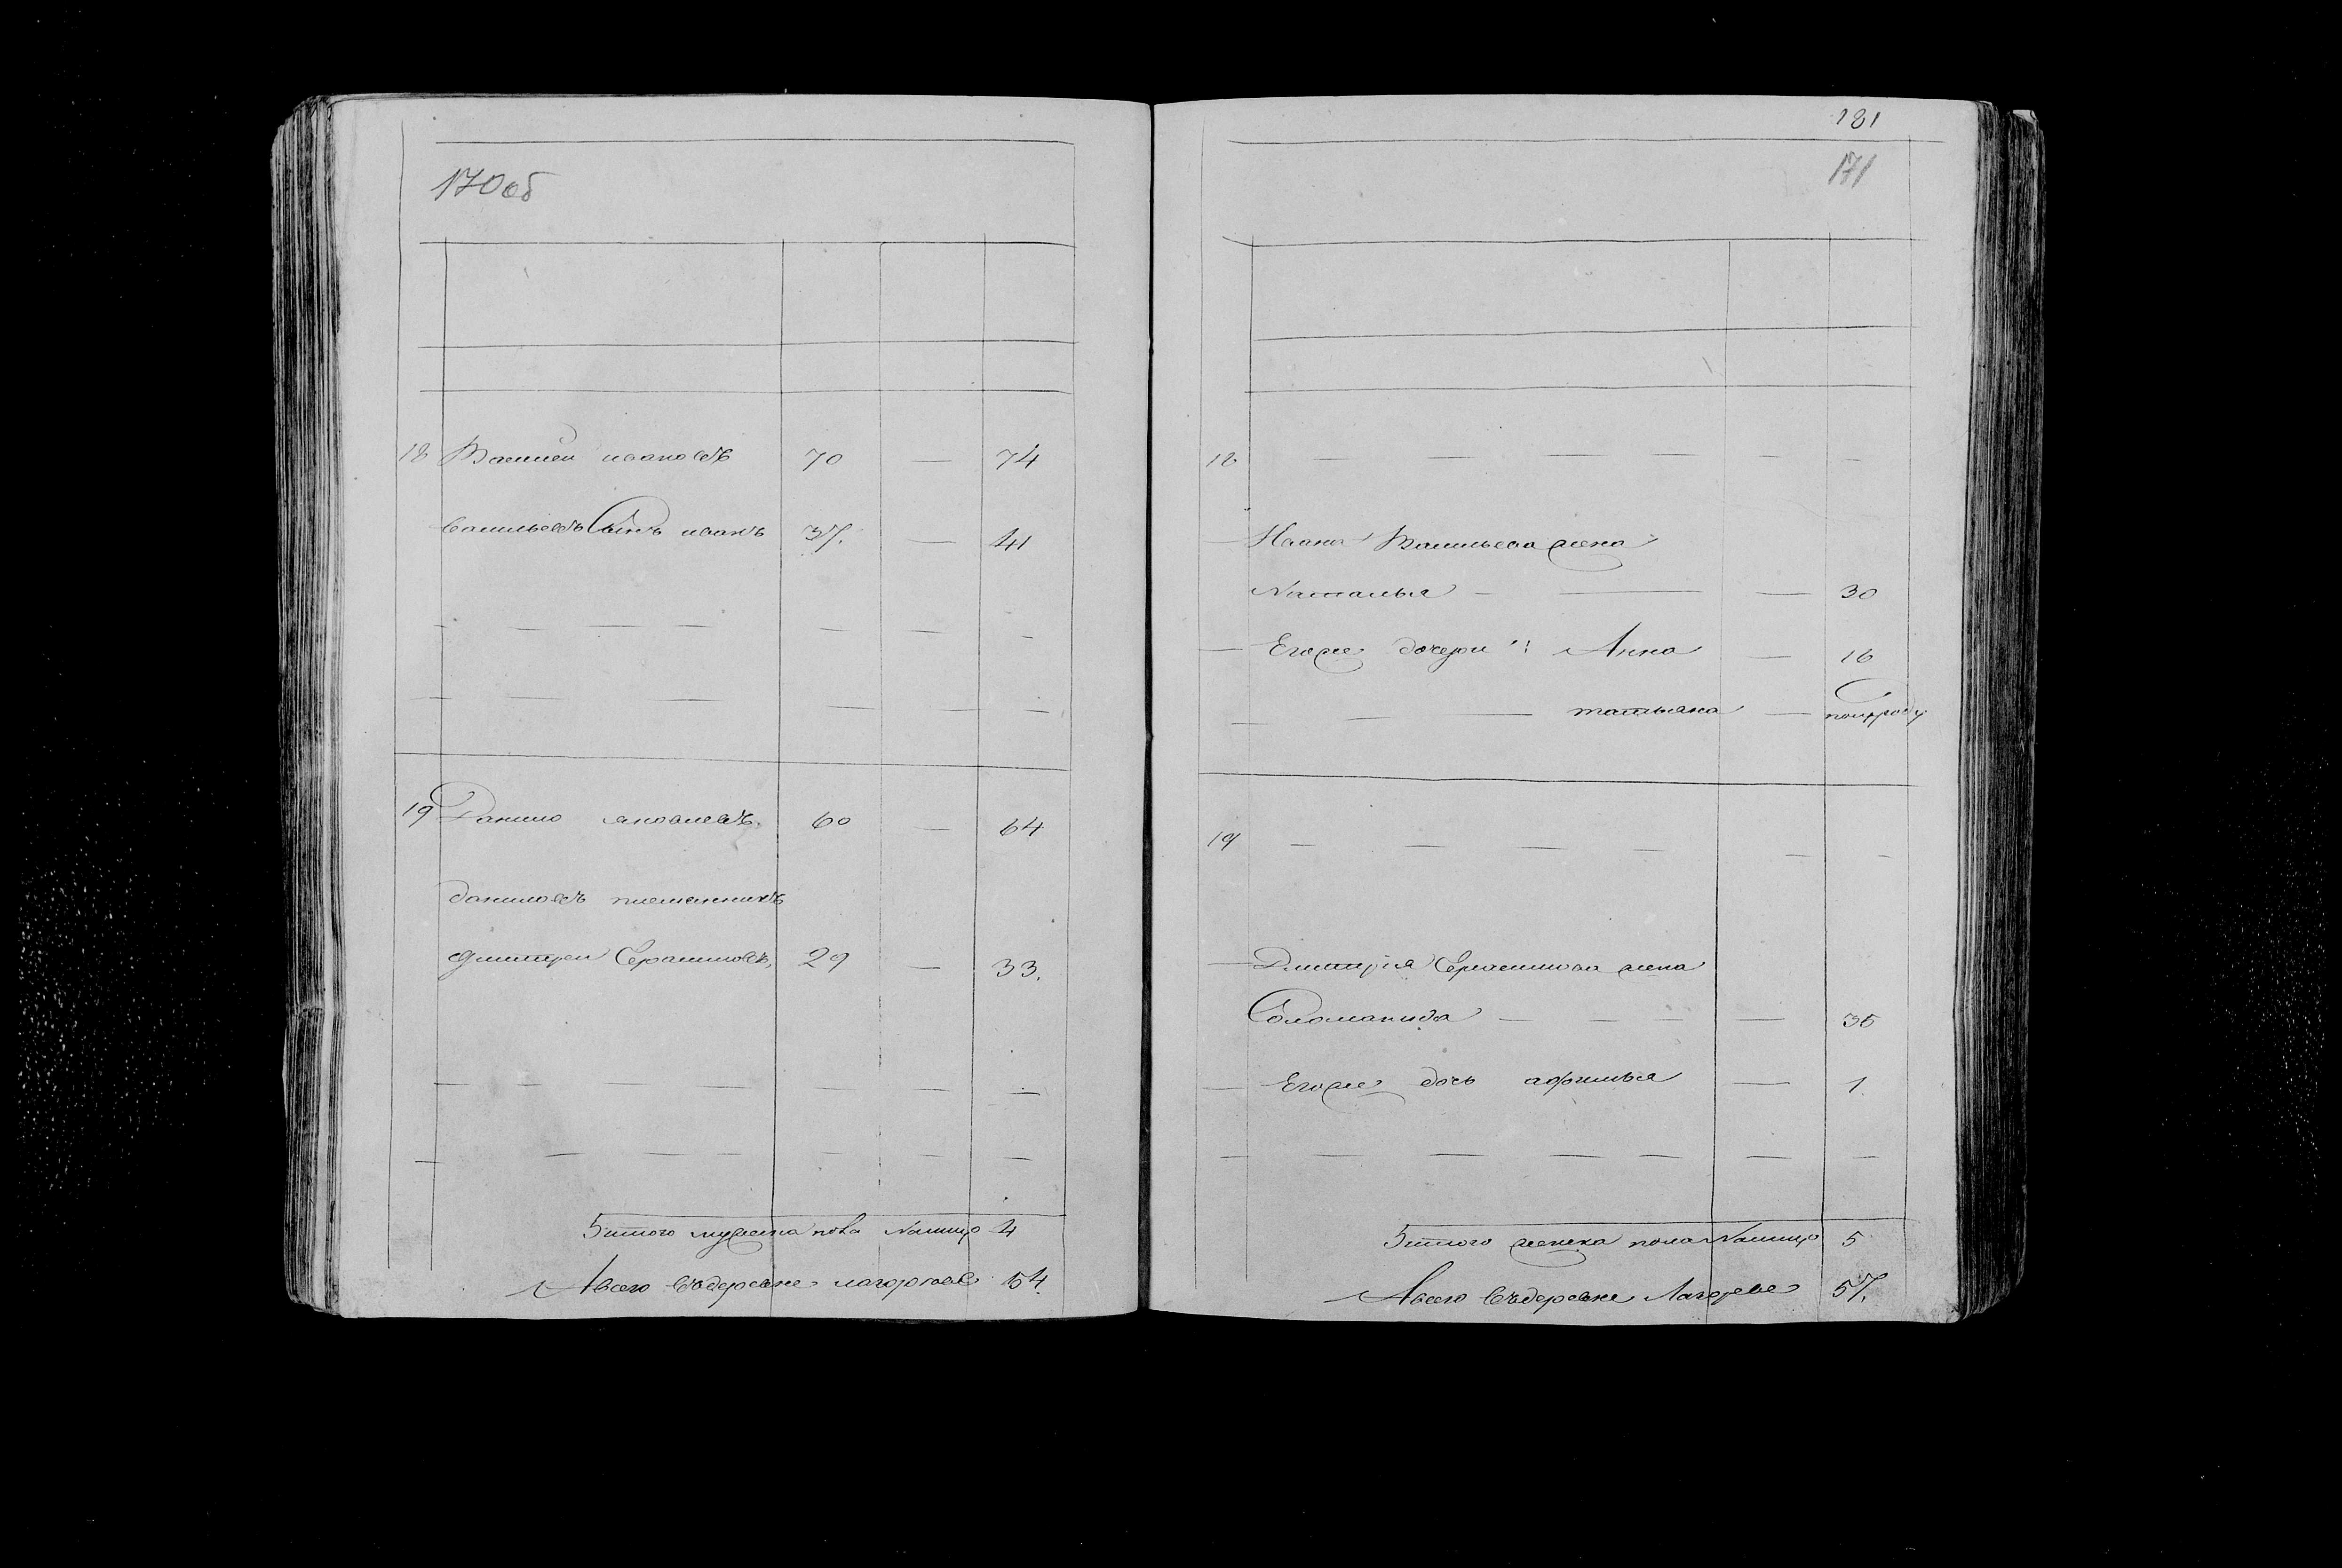 170 об
18 Василей ивановъ 70 — 74
васильевъ Сынъ иванъ 37. — 41
19 Данило яковлевъ 60 — 64
даниловъ племянникъ
дмитреи Герасимовъ, 29 — 33.
Итого мужеска пола налицо 4
А всего въдеревне 54.
181
171
18 — — — — — —
Ивана Васильева жена
Наталья — — — 30
Егоже дочери: Анна — 16
татьяна — полгоду
19 — — — — — —
Дмитрия Герасимова жена
Соломанида — — — — 35
Егоже дочь афимья — 1.
Итого женска пола налицо 5
А всего въдеревне 57.